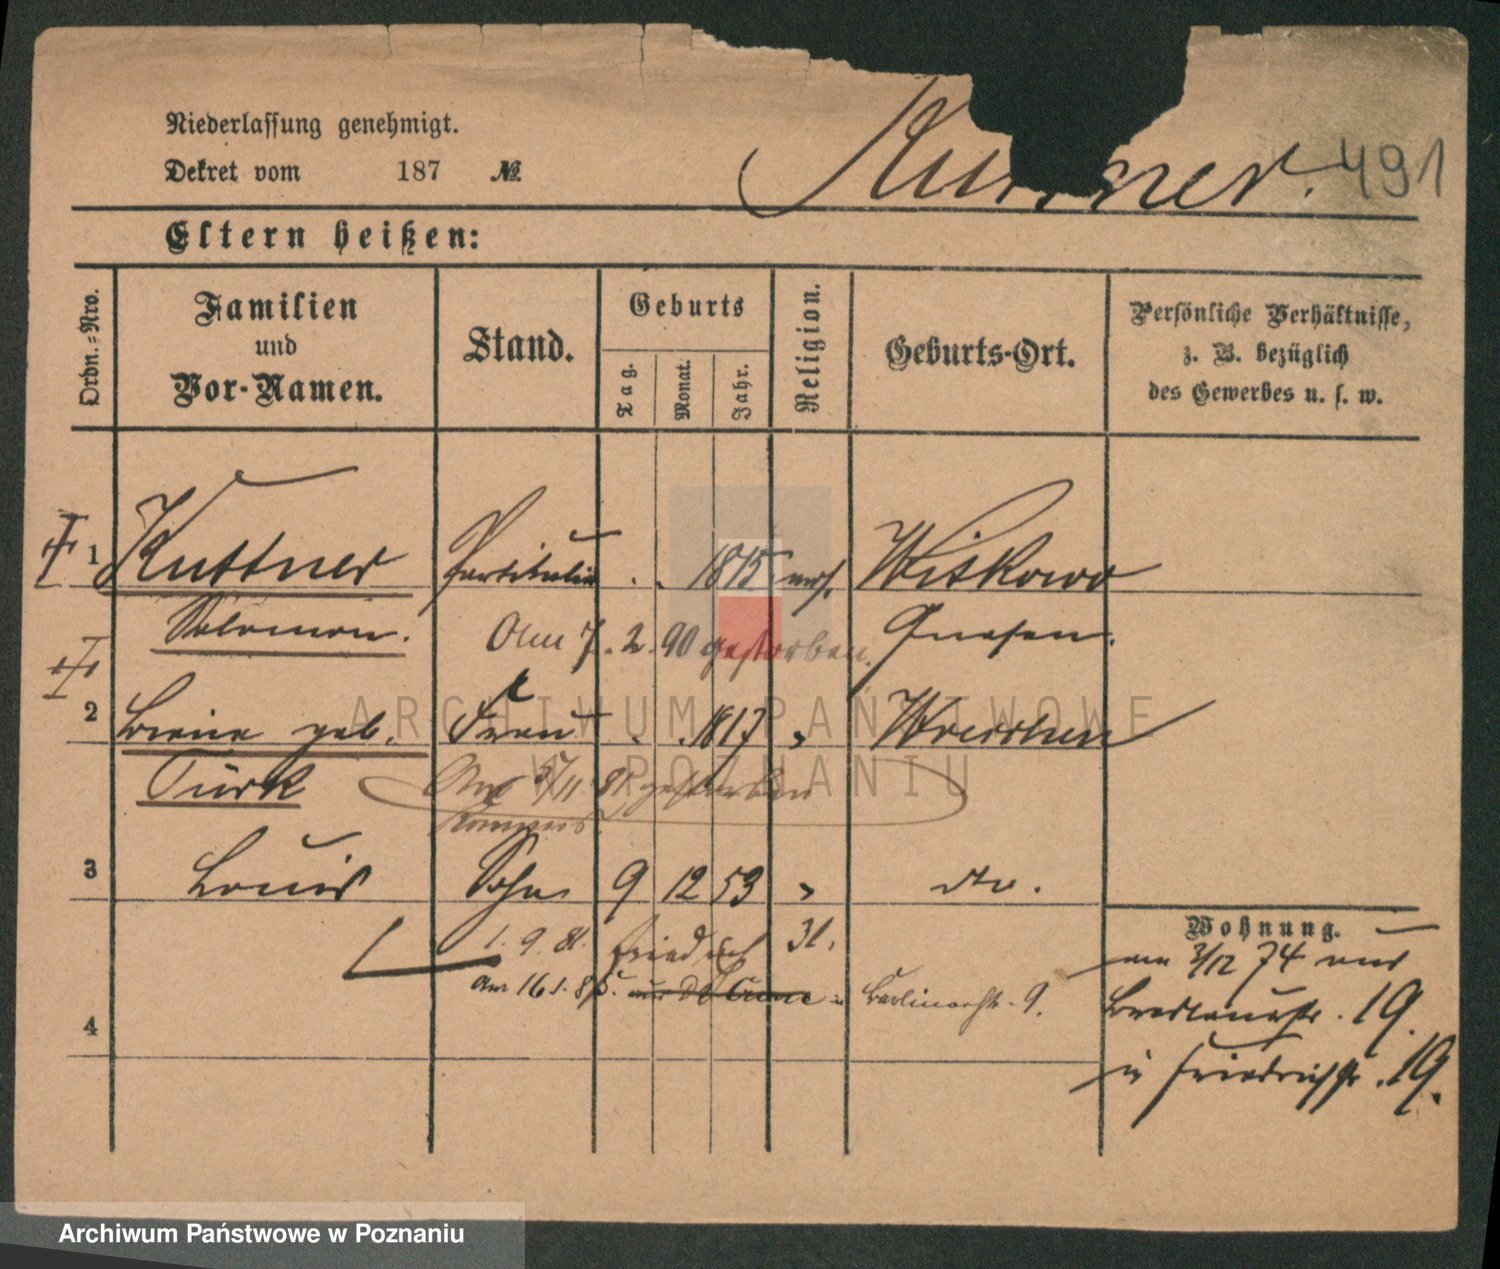 Niederlassung genehmigt.
Dekret vom 187 №
Kuttner. 491
Eltern heißen:
Ordn.=Nro.
Familien und Vor-Namen.
Stand.
Geburts
Tag. Monat. Jahr.
Religion.
Geburts-Ort.
Persönliche Verhältnisse,
z. B. bezüglich
des Gewerbes u. s. w.
1 Kuttner Partikulier . . 1815 mos. Witkowo
Salomon. Am 7. 2. 90 gestorben. Gnesen.
2 geb. Frau . . 1817 " Wreschen
Türk Am 5/11 81 gestorben
3 Louis Sohn 9 12 53 " dto.
1. 9. 81. Friedrichstr 31.
Am 16 1. 85. in Berlinerstr. 9.
4
Wohnung.
am 3/12 74 aus
Breslauerstr. 19.
in Friedrichstr. 19.
ARCHIWUM PAŃSTWOWE
W POZNANIU
Archiwum Państwowe w Poznaniu